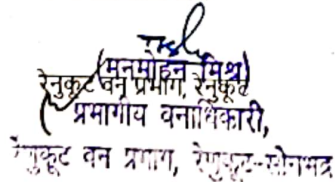 (मनमोहन मिश्र)
रेनुकूट वन प्रभाग, रेनुकूट
प्रभागीय वनाधिकारी,
रेणुकूट वन प्रभाग, रेणुकूट-सोनभद्र